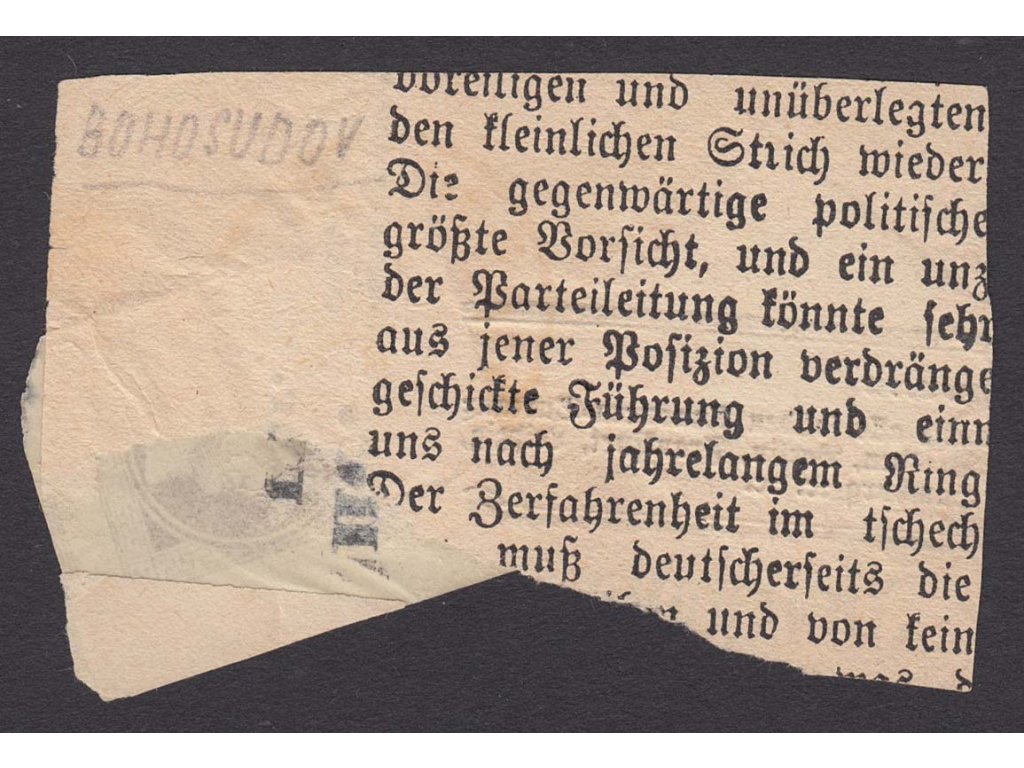 BOHOSUDOV
voreiligen und unüberlegten
den kleinlichen Strich wieder
Die gegenwärtige politische
größte Vorsicht, und ein unz
der Parteileitung könnte sehr
aus jener Posizion verdränge
geschickte Führung und einm
uns nach jahrelangem Ring
Der Zerfahrenheit im tschech
muß deutscherseits die
und von kein